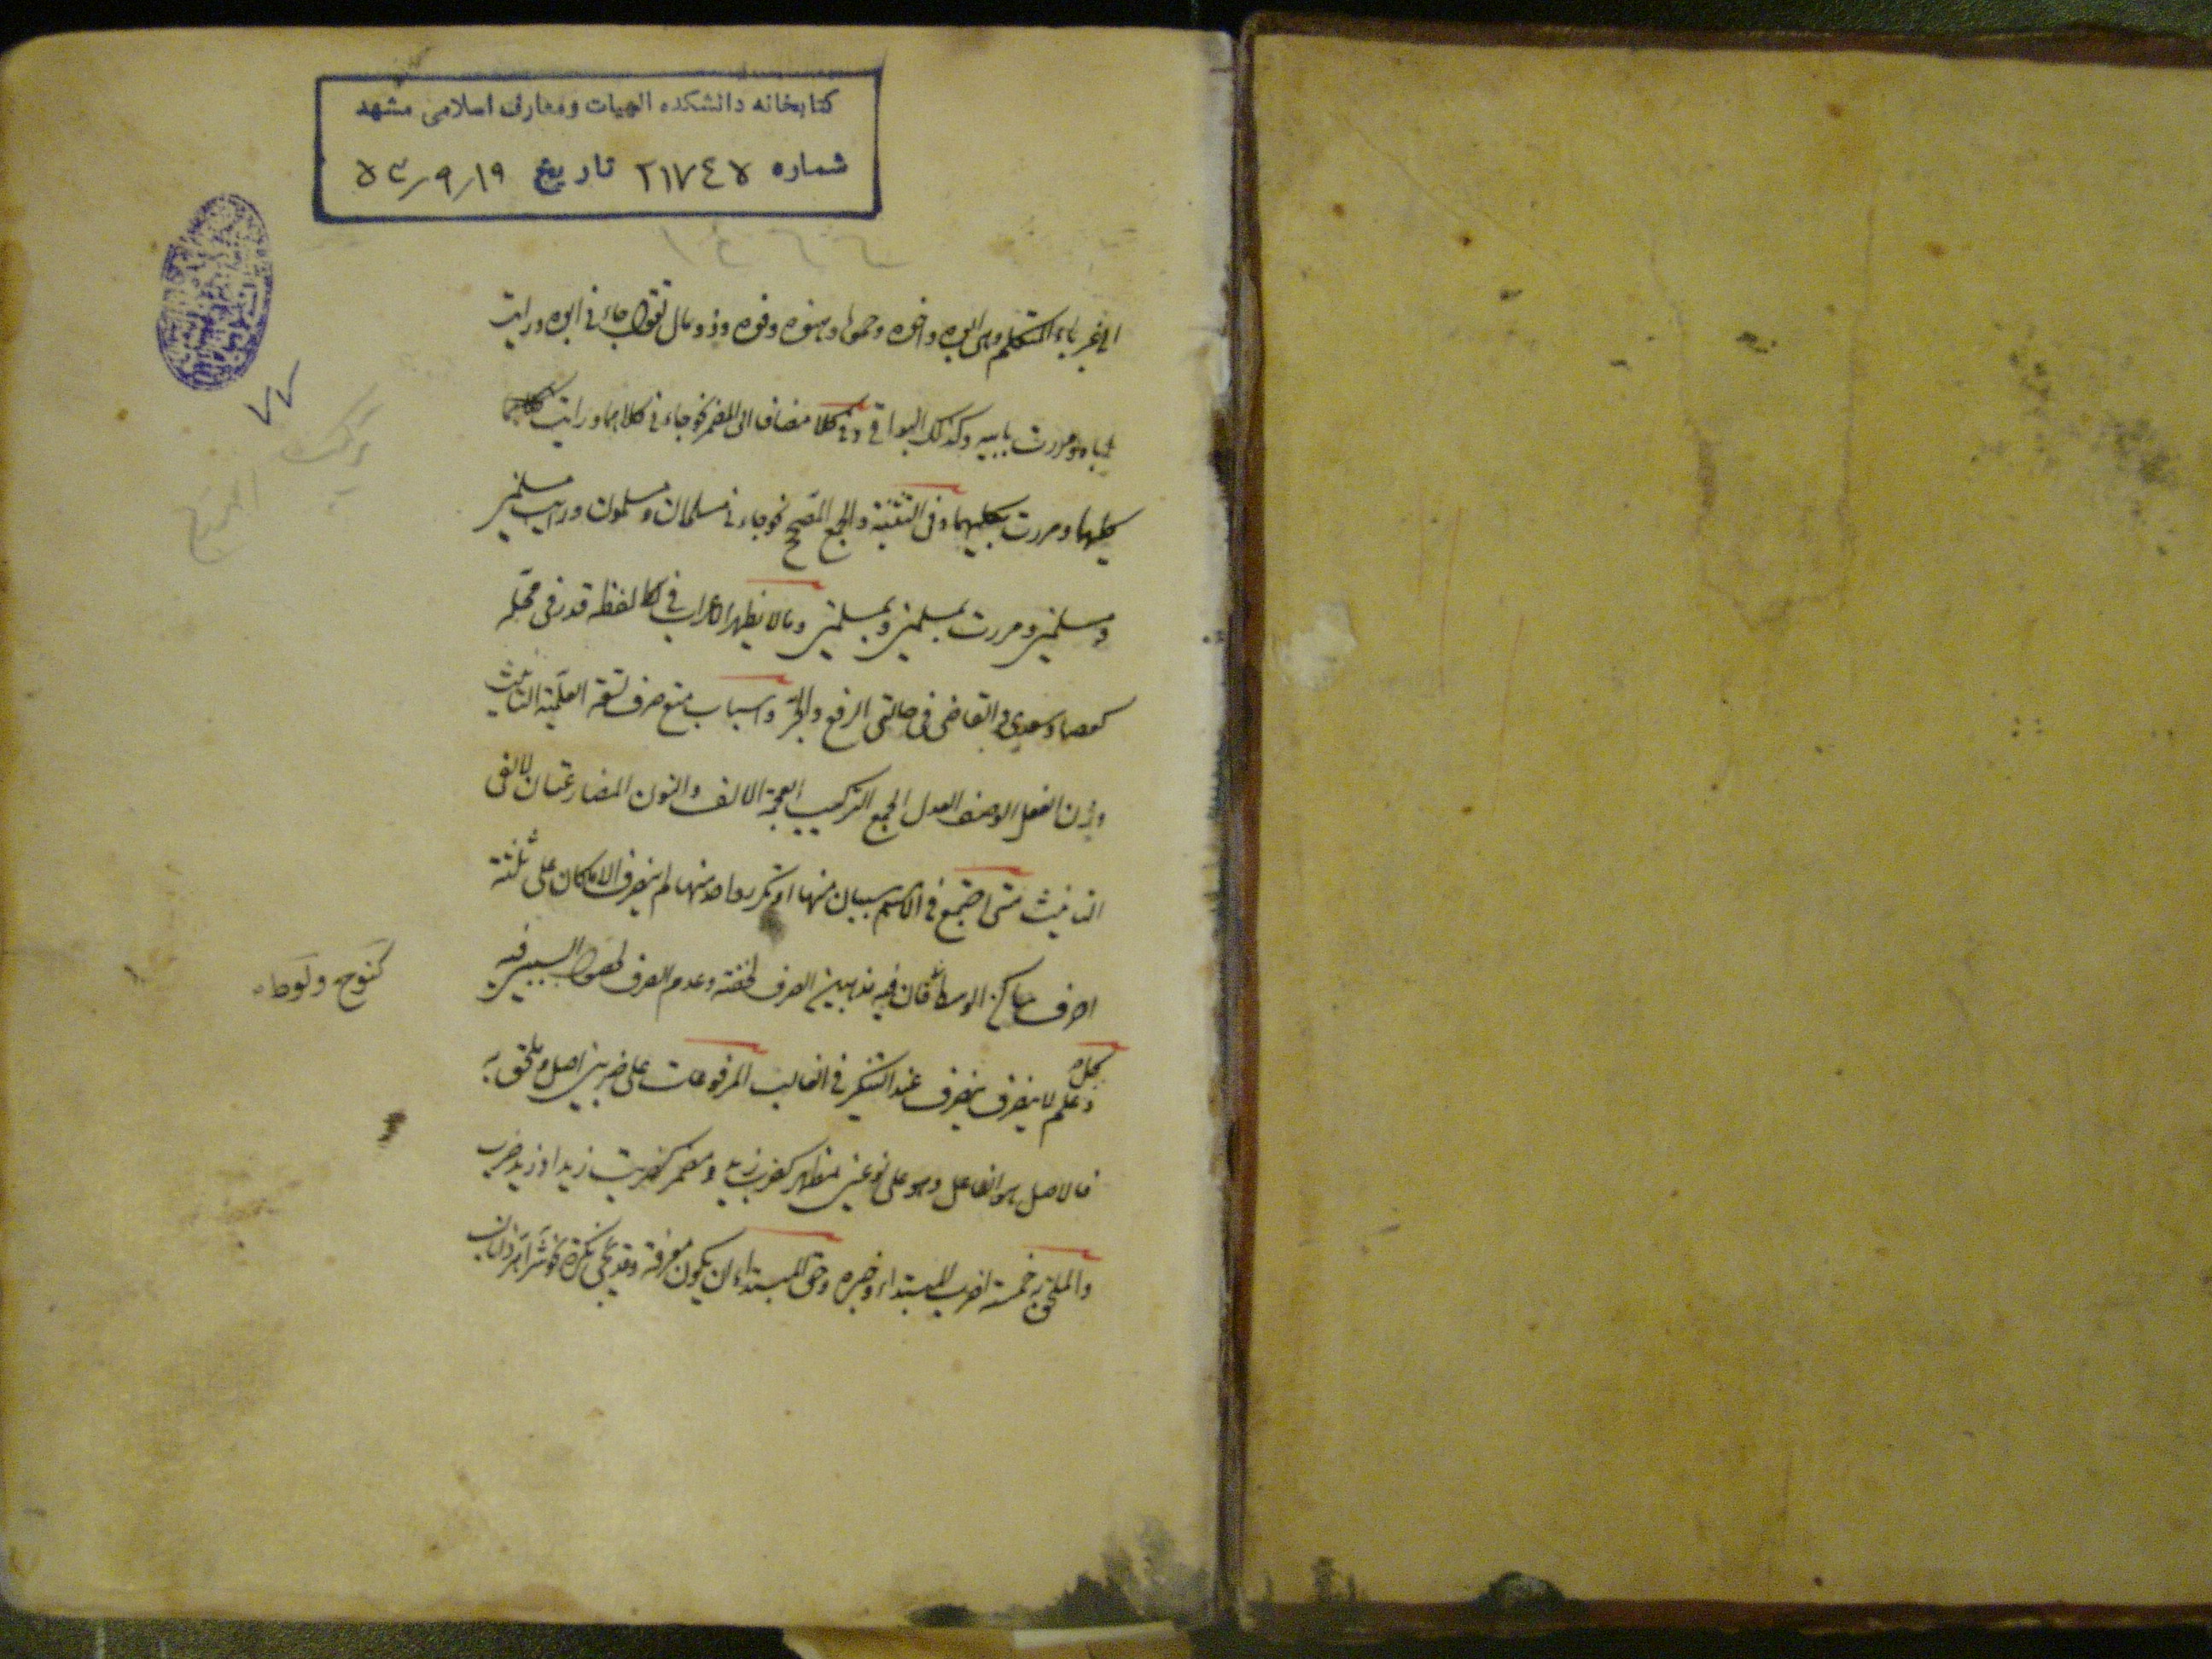 کتابخانه دانشکده الهیات ومعارف اسلامی مشهد
شماره ۲۱۷٤۵ تاریخ ۵۳/۹/۱۹
۷۷
الی غیر یاء المتکلم وهی ابوه واخوه وحموها وهنوه وفوه وذو مال تقول جاءنی ابوه ورایت
اباه ومررت بابیه وکذلک البواقی وفی کلا مضاف الی المضمر نحو جاءنی کلاهما ورایت
کلیهما ومررت بکلیهما وفی التثنیة والجمع المصحح نحو جاءنی مسلمان ومسلمون ورایت مسلمین
ومسلمین ومررت بمسلمین وبمسلمین ومالا یظهر الاعراب فی لفظه قدر فی محله
کعصا وسعدی والقاضی فی حالتی الرفع والجر واسباب منع صرف تسعة العلمیة التانیث
وزن الفعل الوصف العدل الجمع الترکیب العجمة الالف والنون المضارعتان لالفی
التانیث متی اجتمع فی الاسم سببان منها او تکرر واحد منها لم ینصرف الا ماکان علی ثلثة
احرف ساکن الوسط فان فیه مذهبین الصرف لخفته وعدم الصرف لحصول السببین فیه
کنوح ولوط
وکل علم لا ینصرف ینصرف عند التنکیر فی الغالب المرفوعات علی ضربین اصل وملحق به
فالاصل هو الفاعل وهو علی نوعین مظهر کضرب زید ومضمر کضربت زیدا وزید ضرب
والملحق به خمسة اضرب المبتداء وخبره وحق المبتداء ان یکون معرفة وقد یجی نکرة نحو شر اهر ذا ناب